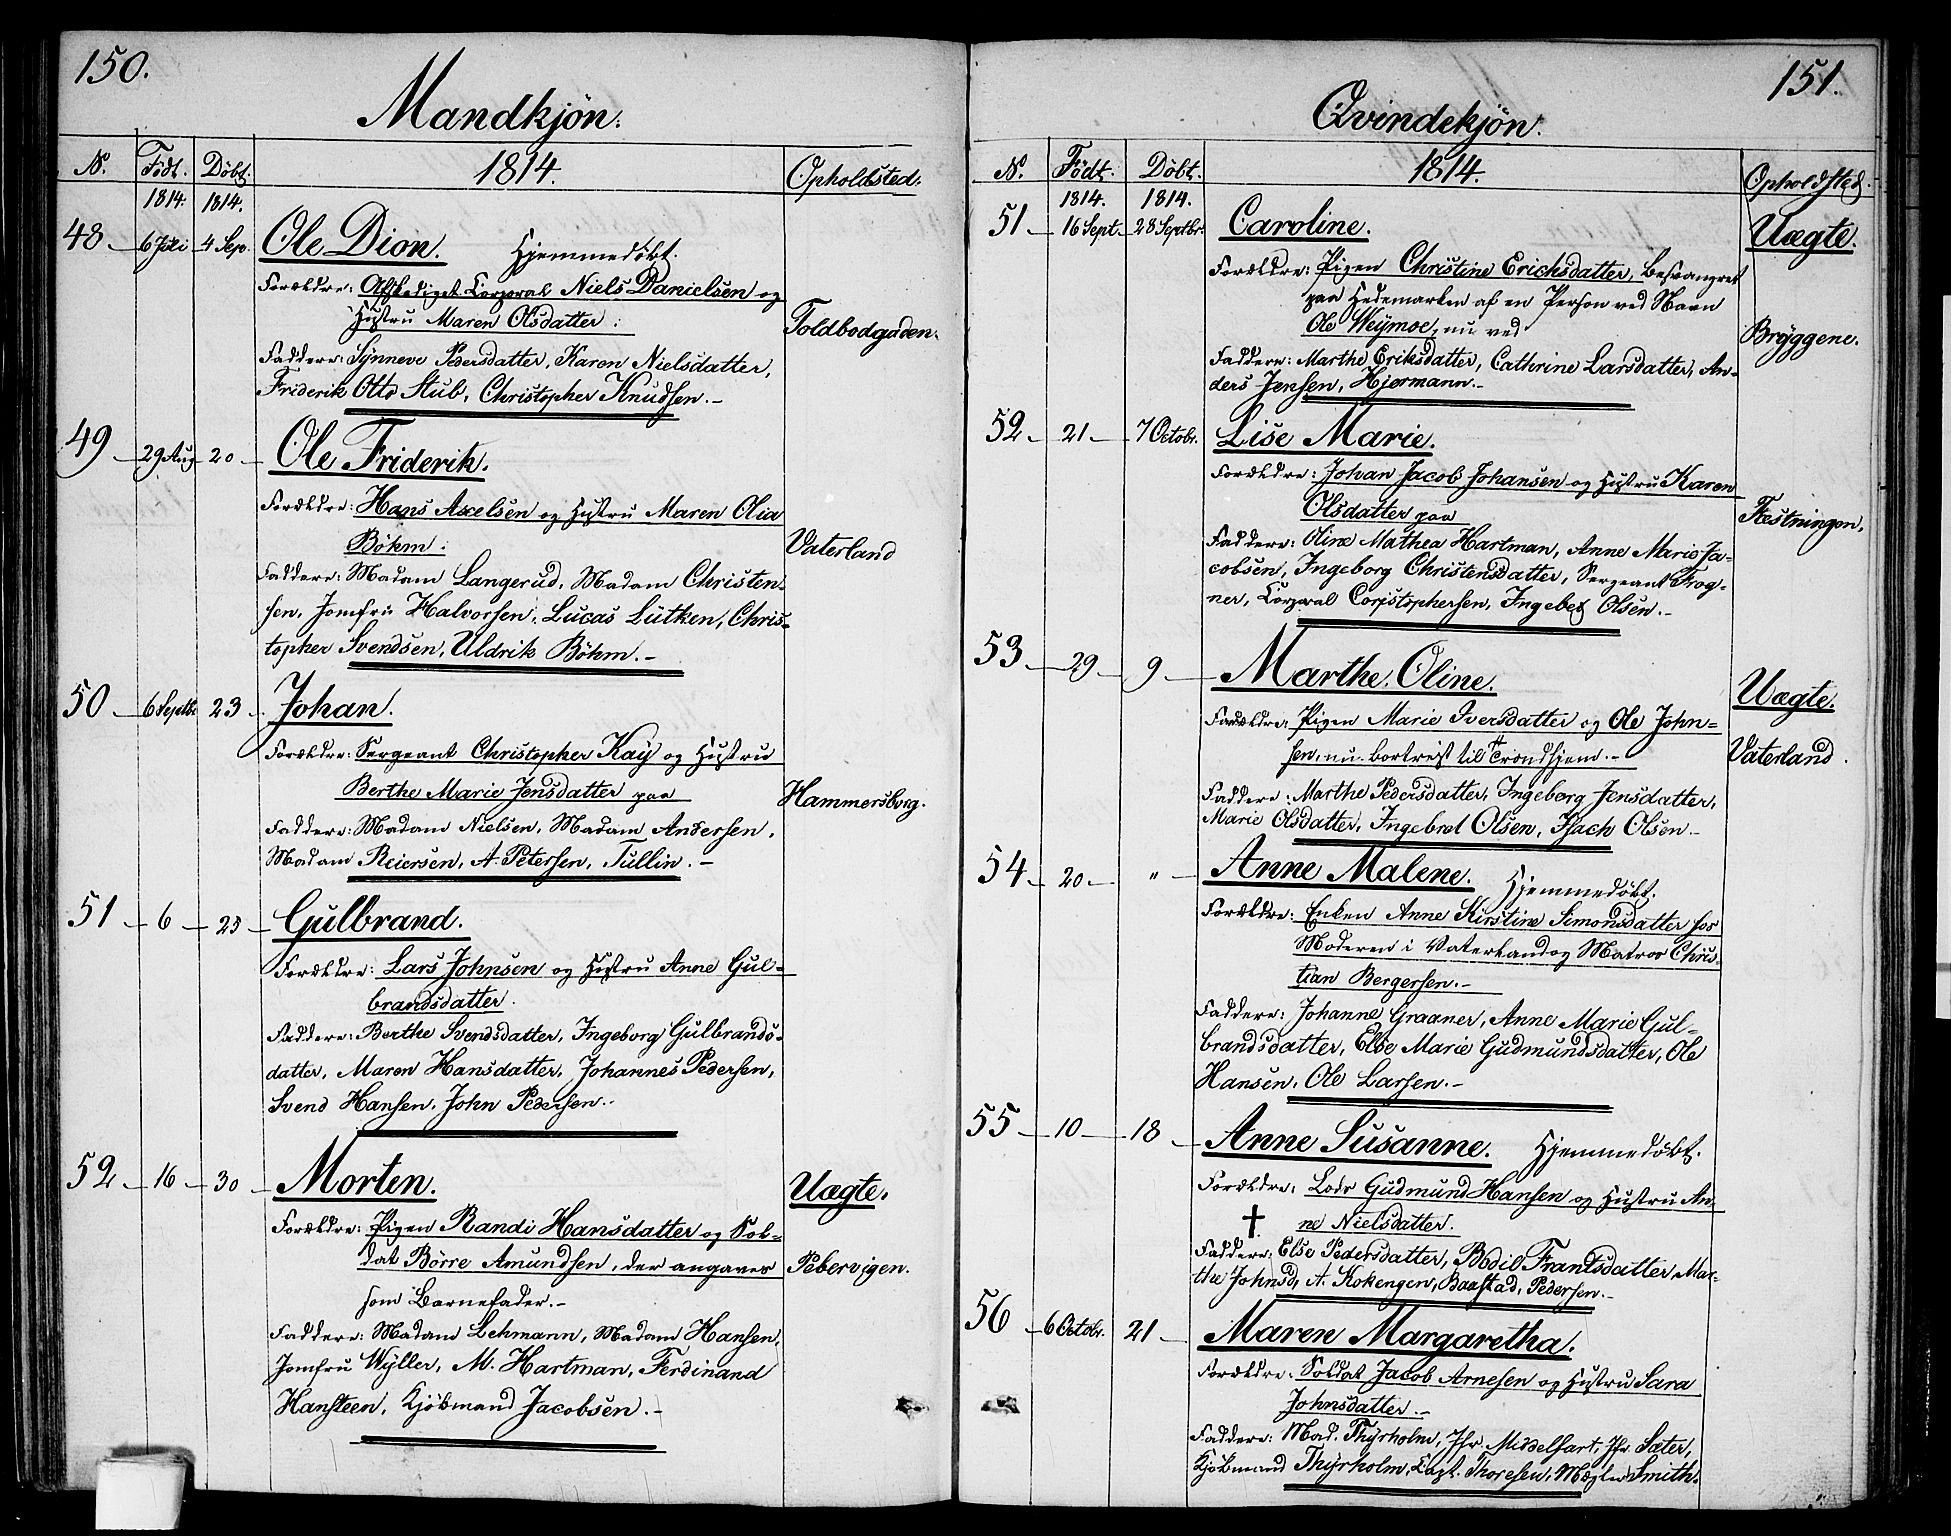 150.
Mandkjön.
N. Födt. Döbt. 1814. Opholdsted.
1814. 1814.
48 6 Juli 4 Sep. Ole Dion. Hjemmedöbt.
Forældre: Afskediget Corporal Niels Danielsen og
Hustru Maren Olsdatter: Toldbodgaden.
Faddere: Synneve Pedersdatter, Karen Nielsdatter,
Friderik Otto Stub, Christopher Knudsen.-
49 29 Aug 20 Ole Friderik.
Forældre: Hans Axelsen og Hustru Maren Olia
Böhm: Vaterland
Faddere: Madam Langerud, Madam Christen-
sen, Jomfru Halvorsen, Lucas Lütken, Chris-
topher Svendsen, Uldrik Böhm.-
50 6 Septbr 23 Johan.
Forældre: Sergeant Christopher Kay og Hustru
Berthe Marie Jensdatter paa Hammersborg.
Faddere: Madam Nielsen, Madam Andersen,
Madam Reiersen, A. Petersen, Tullin.-
51 6 25 Gulbrand.
Forældre: Lars Johnsen og Hustru Anne Gul-
brandsdatter.
Faddere: Berthe Svendsdatter, Ingeborg Gulbrands-
datter, Maren Hansdatter, Johannes Pedersen,
Svend Hansen, John Pedersen.
52 16 30 Morten. Uægte.
Forældre: Pigen Randi Hansdatter og Sol-
dat Börre Amundsen, der angaves Pebervigen.
som Barnefader.-
Faddere: Madam Lehmann, Madam Hansen,
Jomfru Wyller, M. Hartman, Ferdinand
Hansteen, Kjöbmand Jacobsen.-
151.
Qvindekjön.
N. Födt. Döbt. 1814. Opholdsted.
1814. 1814.
51 16 Sept. 28 Septbr. Caroline. Uægte.
Forældre: Pigen Christine Erichsdatter, besvangret
paa Hedemarken af en Person ved Navn
Ole Weymoe, nu ved Bryggene.
Faddere: Marthe Eriksdatter, Cathrine Larsdatter, An-
ders Jensen, Hjermann.-
52 21 7 Octobr. Lise Marie.
Forældre: Johan Jacob Johansen og Hustru Karen
Olsdatter paa Fæstningen.
Faddere: Oline Mathea Hartman, Anne Marie Ja-
cobsen, Ingeborg Christensdatter, Sergeant Frog-
ner, Corporal Corpstophersen, Ingebet Olsen.-
53 29 9 Marthe Oline. Uægte.
Forældre: Pigen Marie Iversdatter og Ole John-
sen, nu bortreist til Trondhjem.- Vaterland.
Faddere: Marthe Pedersdatter, Ingeborg Jensdatter,
Marie Olsdatter, Ingebret Olsen, Isach Olsen.-
54 20 " Anne Malene. Hjemmedöbt.
Forældre: Enken Anne Kirstine Simonsdatter hos
Moderen i Vaterland og Matros Chris-
tian Bergersen.-
Faddere: Johanne Graaner, Anne Marie Gul-
brandsdatter, Else Marie Gudmundsdatter, Ole
Hansen, Ole Larsen.-
55 10 18 Anne Susanne. Hjemmedöbt.
Forældre: Lods Gudmund Hansen og Hustru An-
† ne Nielsdatter.
Faddere: Else Pedersdatter, Bodil Frantsdatter, Mar-
the Johnsd, A. Kokengen, Baastad, Pedersen.-
56 6 Octobr. 21 Maren Margaretha.
Forældre: Soldat Jacob Arnesen og Hustru Sara
Johnsdatter.-
Faddere: Mad. Thyrholm, Jfr Middelfart, Jfr Sæter,
Kjöbmand Thyrholm, Capt. Thoresen, Mægler Smith.